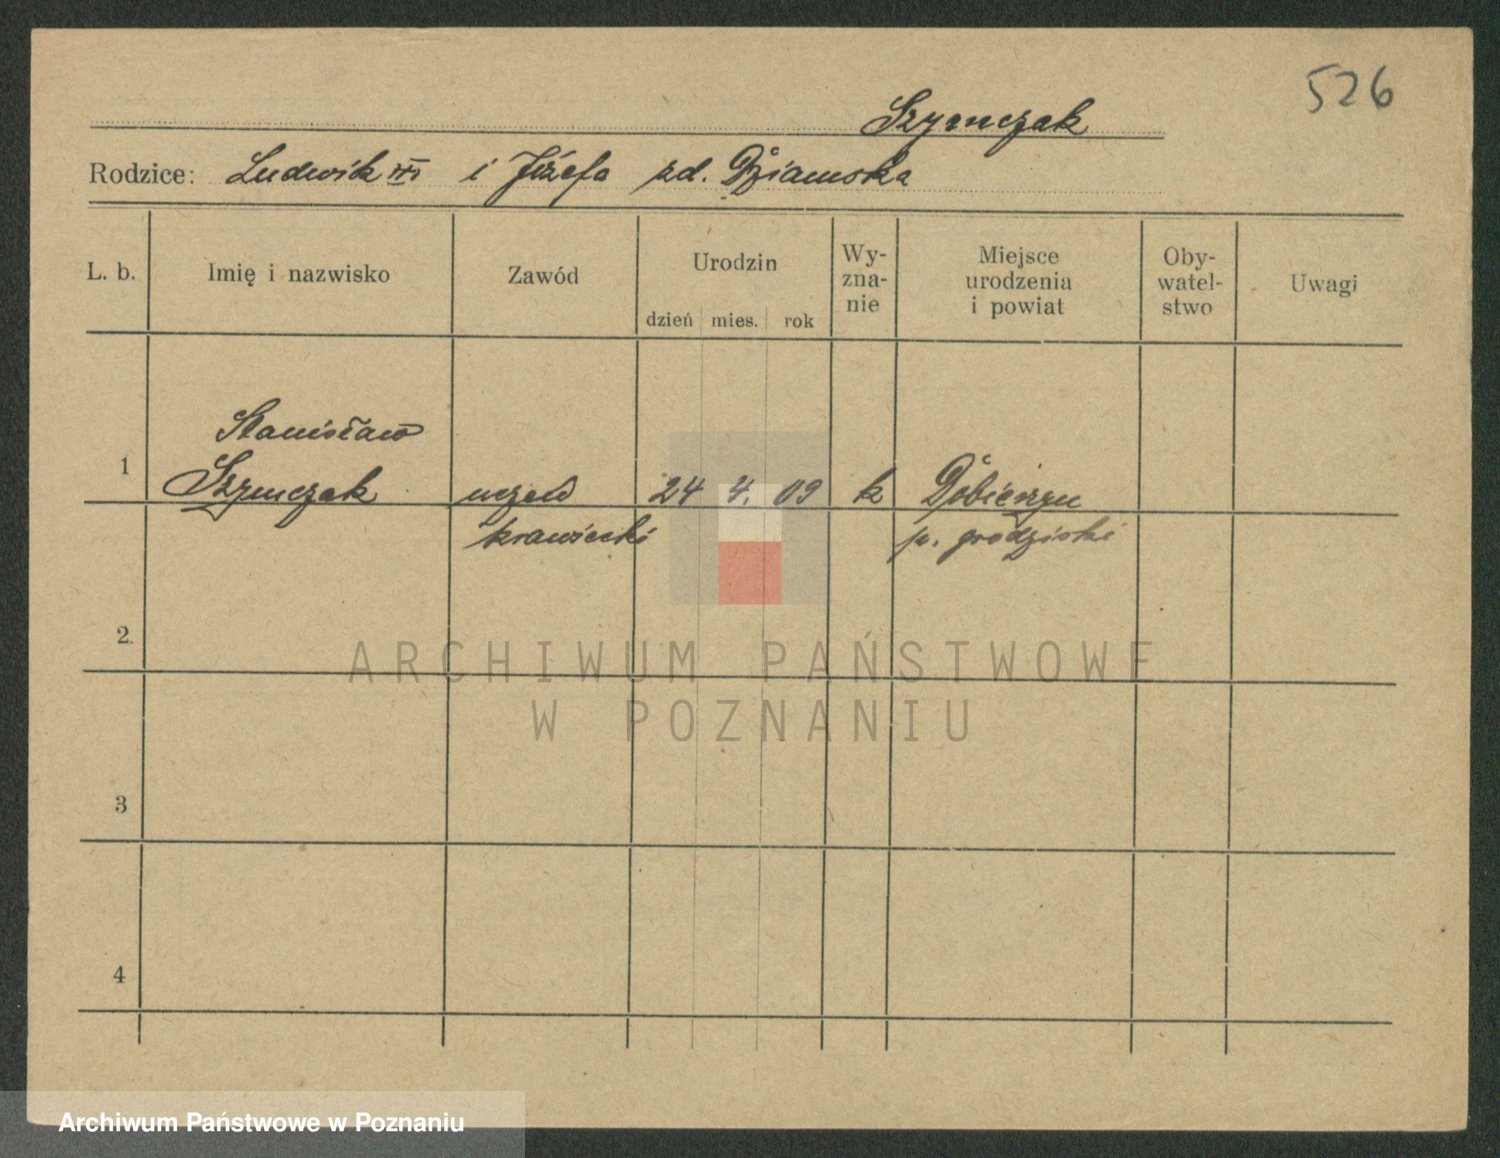 526
Szymczak
Rodzice: Ludwik i Józefa zd. Dziamska
L. b. Imię i nazwisko Zawód Urodzin Wy-zna-nie Miejsce urodzenia i powiat Oby-watel-stwo Uwagi
dzień mies. rok
Stanisław
1 Szymczak uczeń 24 4. 09 k
krawiecki p. grodziski
2
3
4
ARCHIWUM PAŃSTWOWE
W POZNANIU
Archiwum Państwowe w Poznaniu